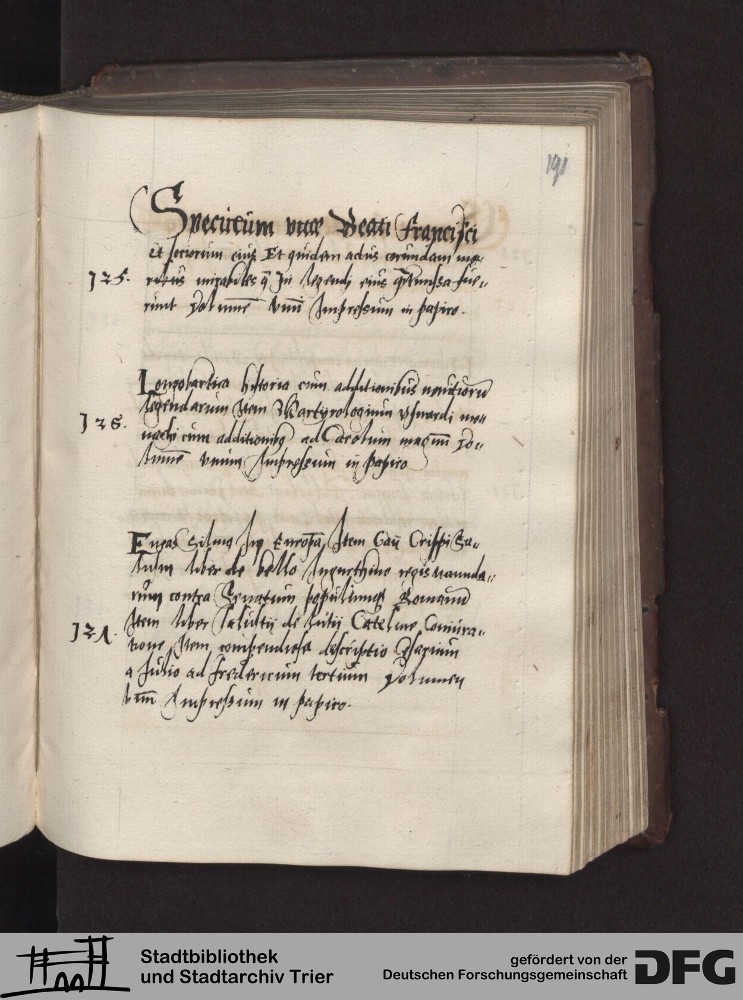 191
Speculum vite Beati Francisci
et sociorum eius Et quidem actus eorundem
J25. mirabiles q̄ In legenda eius fue-
runt volumē vnū Impressum in papiro.
Longobartica historia cum additionibus
legendarum Item Martyrologium vsuardi mo-
J26. nachi cum additionibꝰ ad Carolum magnū vo-
lumē vnum Impressum in papiro
Eneas Siluius In Europā Item Caii Crispi Sa-
lusti liber de bello Iugurthino regis numida-
rum contra Senatum populumqꝫ Romanū
Item liber Salustii de Lutii Cateline Coniura-
J27. tione Item compendiosa descriptio Cesarum
a Julio ad fredericum tertium Volumen
vnū Impressum in papiro.
Stadtbibliothek
und Stadtarchiv Trier
gefördert von der
Deutschen Forschungsgemeinschaft
DFG